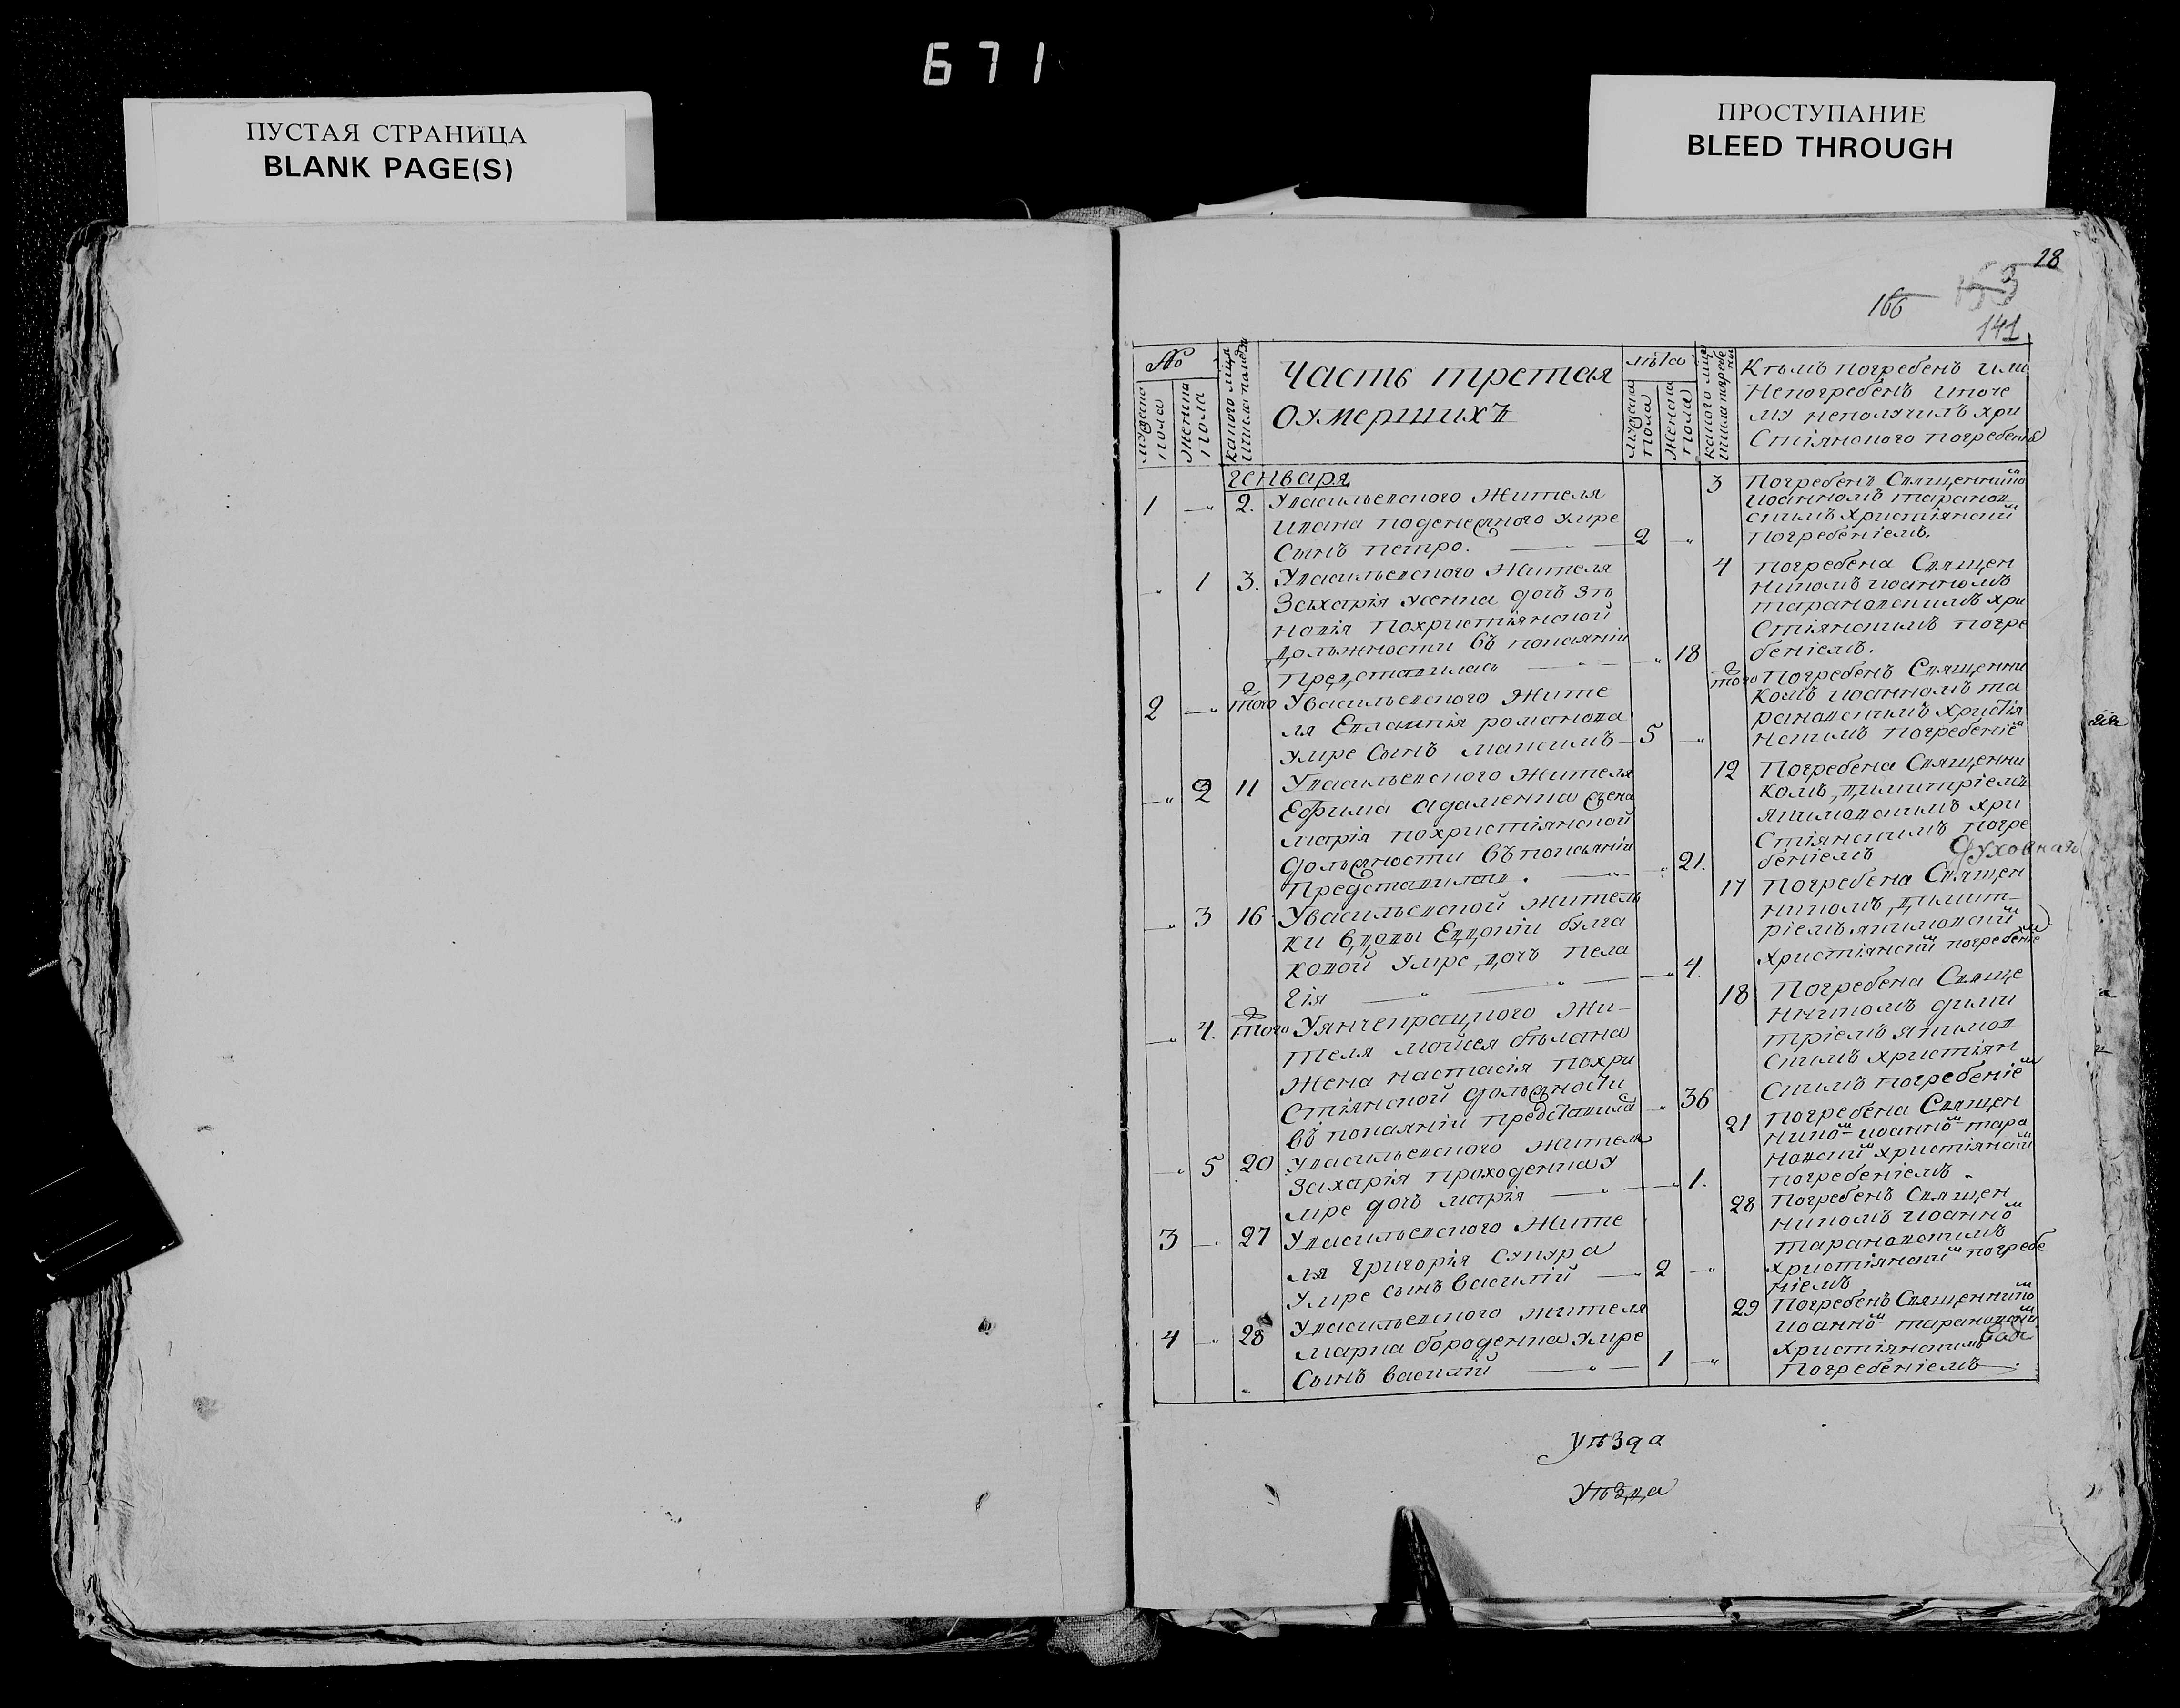 671
ПУСТАЯ СТРАНИЦА
BLANK PAGE(S)
ПРОСТУПАНИЕ
BLEED THROUGH
28
166
141
№
мужеска пола
женска пола
Часть третая
Оумершихъ
лѣта
мужеска пола
женска пола
Кѣмъ погребенъ или
Непогребенъ ипоче
му неполучилъ хри
Стіянского погребенія
генваря
1 2. Увасильевского Жителя
Ивана поденежного умре
Сынъ петро. 2
3 Погребенъ Священнико
м
иоанномъ таранов
скимъ христіянски
м
Погребеніемъ.
1 3. Увасильевского Жителя
Захарія усенка дочь Зѣ
новія Похристіянской
Должности въ покаяніи
Представилась 18
4 погребена Священ
никомъ иоанномъ
тарановскимъ хри
Стіянскимъ погре
беніемъ.
2 того Увасильевского Жите
ля Евлампія романова
умре Сынъ максимъ 5
того Погребенъ Священни
комъ иоанномъ та
рановскимъ христія
нскимъ погребеніе
м
2 11 Увасильевского Жителя
Ефима адаменка жена
марія похристіянской
должности въ покаяніи
Представилась. 21.
12 Погребена Священни
комъ Димитріемъ
якимовскимъ хри
Стіянскимъ погре
беніемъ
Духовнаго
3 16 Увасильевской Житель
ки вдовы Евдокіи булга
ковой умре дочь пела
гія 4.
17 Погребена Священ
никомъ Димит-
ріемъ якимовски
м
христіянски
м погребеніе
м
4. того Уянчекрацкого Жи-
теля мойсея бѣлана
Жена настасія похри
Стіянской должности
въ покаяніи представила 36
18 Погребена Свяще
нникомъ дими
тріемъ якимов
скимъ христіян
скимъ погребеніе
м
5 20 Увасильевского жителя
Захарія проходенка у
мре дочь марія 1.
21 погребена Священ
нико
м иоанно
м тара
новски
м христіянски
м
погребеніемъ.
3 27 Увасильевского Жите
ля григорія Супура
умре сынъ василій 2
28 Погребенъ Священ
никомъ иоанно
м
тарановскимъ
христіянски
м погребе
ніемъ
4 28 Увасильевского жителя
марка бороденка умре
Сынъ василій 1
29 Погребенъ Священнико
м
иоанно
м тарановски
м
христіянскимъ
Погребеніемъ
уѣзда
уѣзда